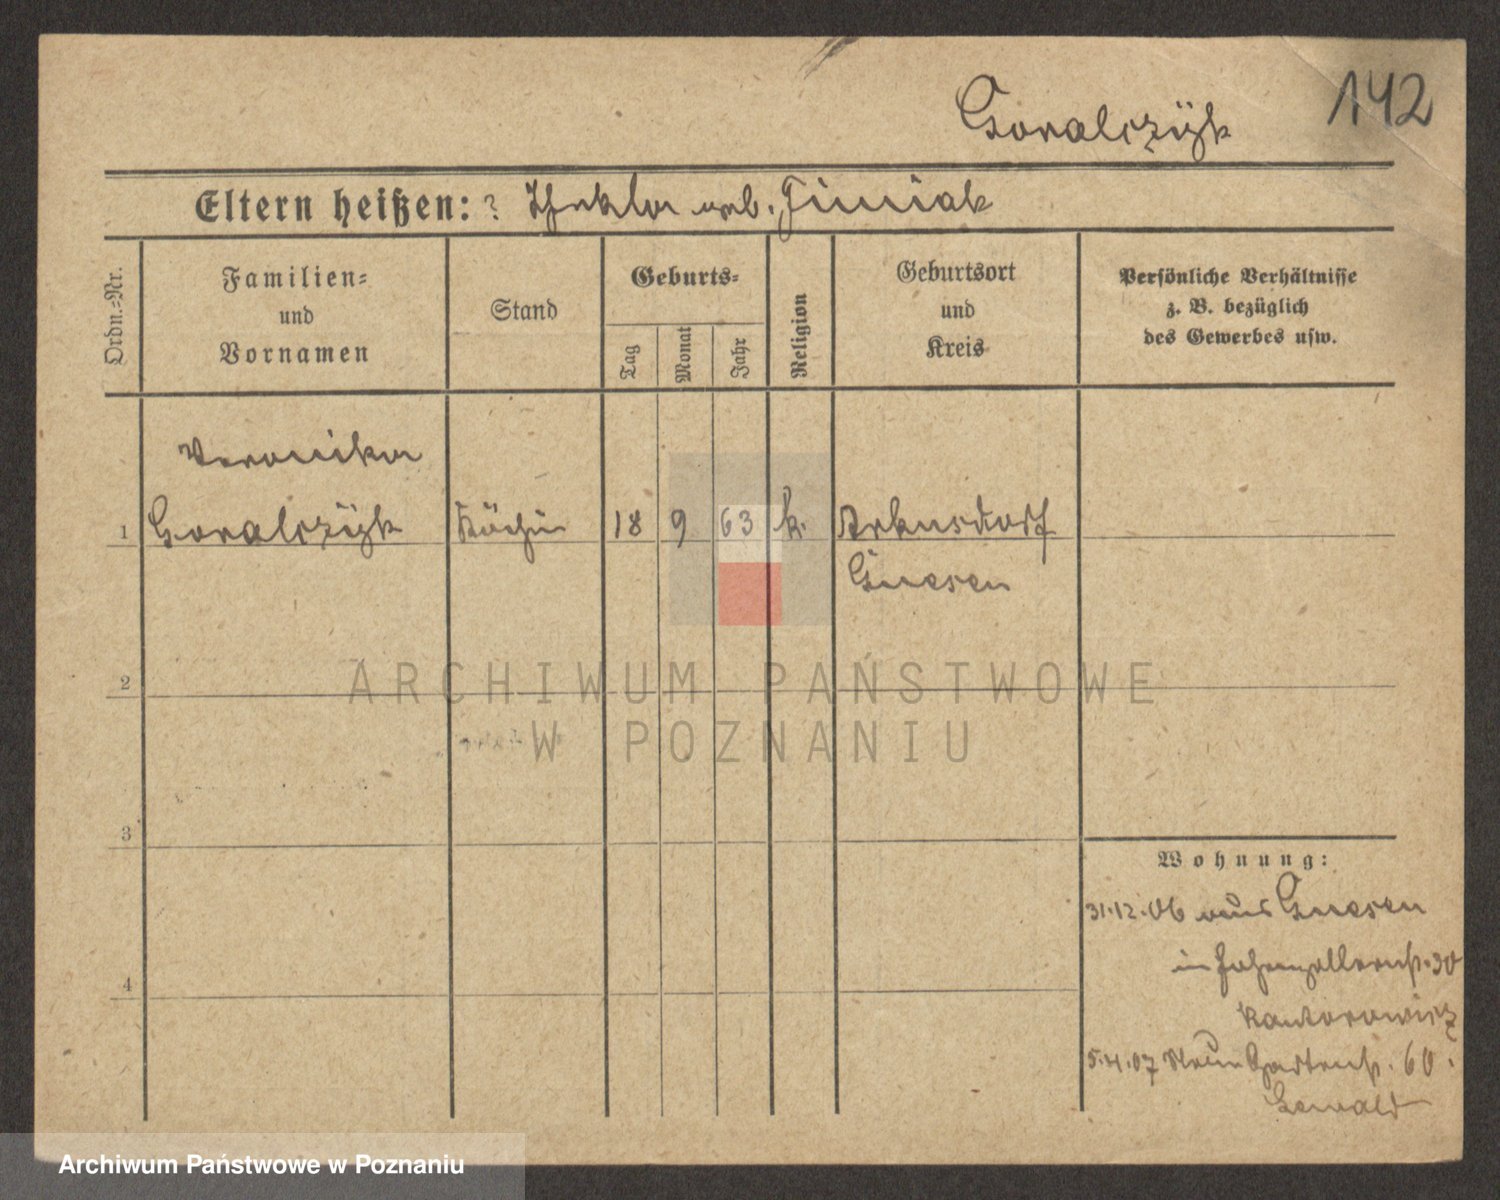 142
Goralczÿk
Eltern heißen: ? Thekla geb. Finiak
Ordn.-Nr.
Familien-
und
Vornamen
Stand
Geburts-
Tag
Monat
Jahr
Religion
Geburtsort
und
Kreis
Persönliche Verhältnisse
z. B. bezüglich
des Gewerbes usw.
Veronika
1 Goralczÿk Köchin 18 9 63 k. Arkusdorf
Gnesen
2
3
4
Wohnung:
31.12.06 aus Gnesen
in Hohenzollernst. 30
Kantorowicz
5.4.07 Neue Gartenst. 60.
Ewald
ARCHIWUM PAŃSTWOWE
W POZNANIU
Archiwum Państwowe w Poznaniu